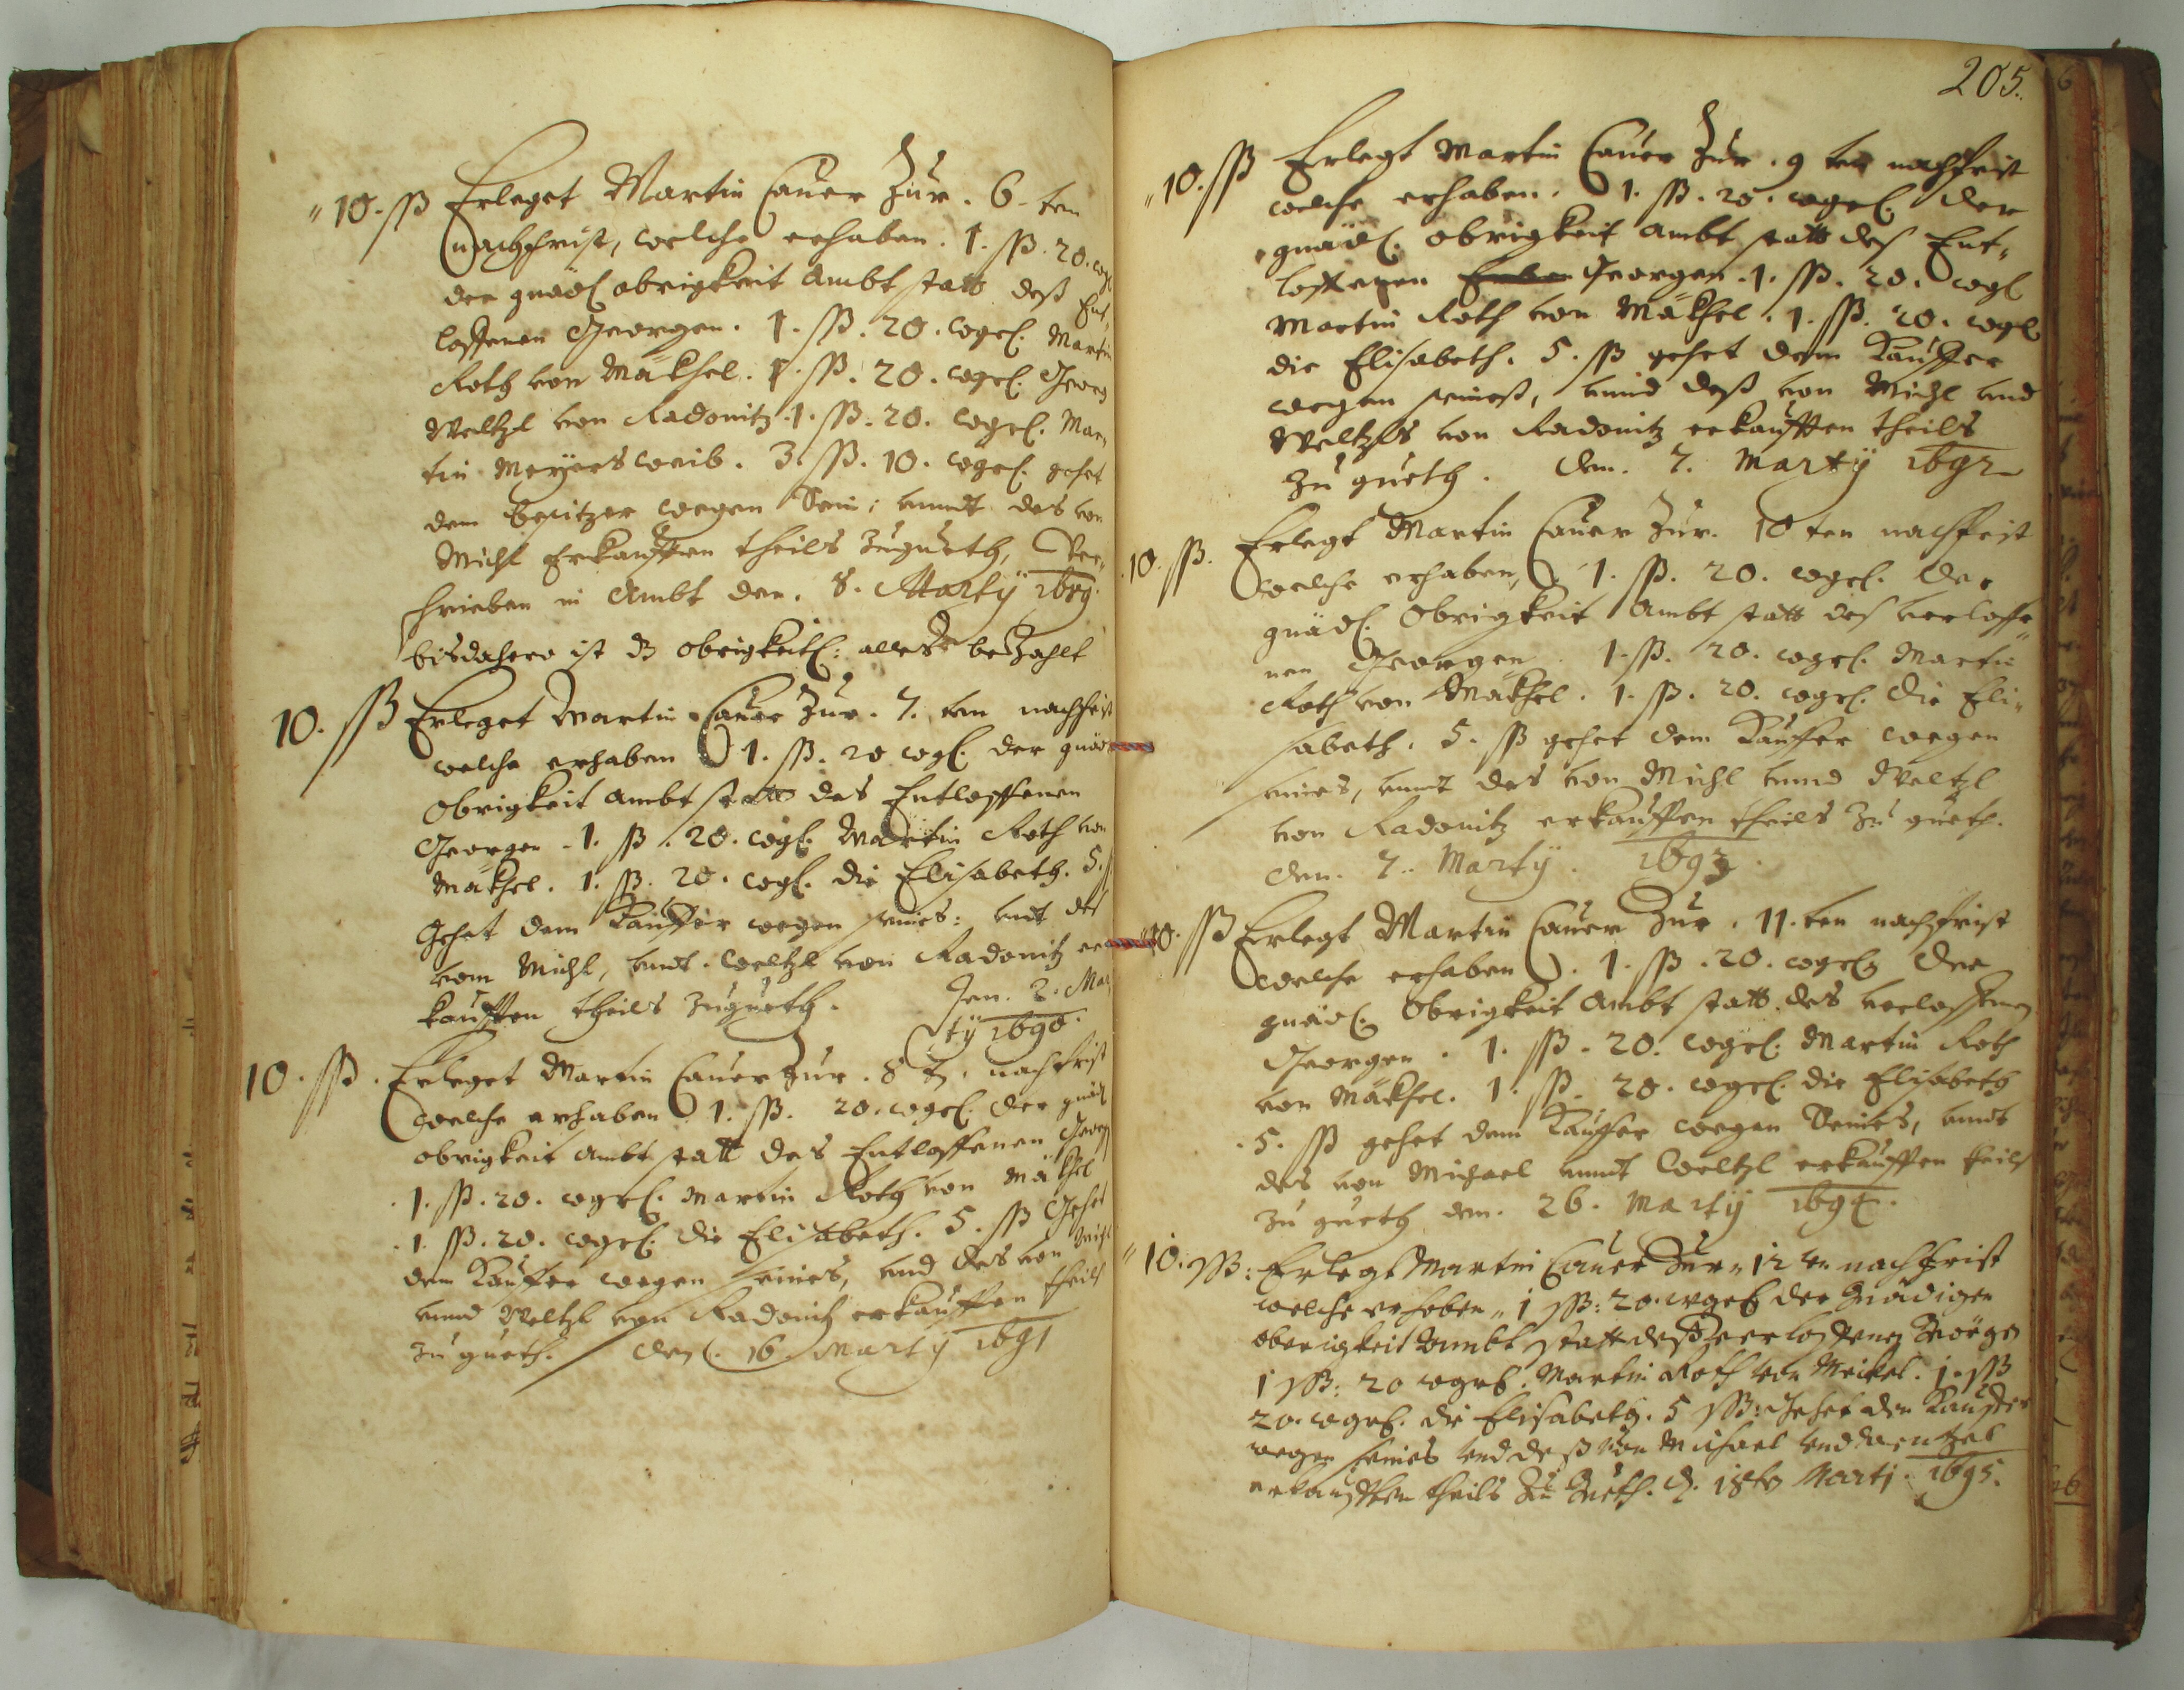 "10. ßß Erleget Martin Cauer Zur. 6. ten
nachfrist, welche erhaben. 1. ßß. 20. wgl
der gnädl obrigkeit Ambt statt deß Ent,
loffenen Georgen. 1. ßß. 20. wgrl. Martin
Roth von Mäkhel. 1. ßß. 20. wgrl. Georg
Weltzl von Radonitz. 1. ßß. 20. wgrl. Mar,
tin Meyers weib. 3. ßß. 10. wgrl. gehet
dem besitzer wegen Sein; unndt des von
Michl Erkaufften theils Zugueth, Ver,
schrieben in Ambt den. 8. Martij 1689.
bisdahero ist obrigkeitl: alles bezahlt
10. ßß Erleget Martin Cauer Zur. 7. ten nachfrist
welche erhaben 1. ßß. 20 wgl. der gnäd
Obrigkeit Ambt statt des Entloffenen
Georgen. 1. ßß. 20. wgl. Martin Roth von
Mäkhel. 1. ßß. 20. wgl. die Elisabeth. 5. ß
Gehet dem Kauffer wegen seines: undt des
vom Michl, undt. Weltzl von Radonitz er
kaufften theils Zugueth. Den. 2. Mar
tij 1690.
10. ßß. Erleget Martin Cauer Zur. 8 t. nachfrist
welche erhaben 1. ßß. 20. wgrl. der gnädl
obrigkeit Ambt statt des Entloffenen Georg
. 1. ßß. 20. wgrl. Martin Roth von Mäkhel
. 1. ßß. 20. wgrl. die Elisabeth. 5. ßß Gehet
dem Kauffer wegen seines, und des von Michl
unnd Weltzl von Radonitz erkaufften theils
Zu gueth. den. 16. Martij 1691
205.
"10. ßß Erlegt Martin Cauer Zur. 9 ten nachfrist
welche erhaben. 1. ßß. 20. wgrl. der
gnädl. obrigkeit Ambt statt des Ent,
loffenen Georgen. 1. ßß. 20. wgl
Martin Roth von Mäkhel. 1. ßß. 20. wgl.
die Elisabeth. 5. ßß gehet dem Kauffer
wegen seines, unnd deß von Michl und
Weltzls von Radonitz erkaufften theils
Zu gueth. den. 7. Martij 1692
10. ßß. Erlegt Martin Cauer Zur. 10 ten nachfrist
welche erhaben, 1. ßß. 20. wgrl. der
gnädl. Obrigkeit Ambt statt des verloffe,
nen Georgen. 1. ßß. 20. wgrl. Martin
Roth von Mäkhel. 1. ßß. 20. wgrl. die Eli,
sabeth. 5. ßß gehet dem Kauffer wegen
seines, unnt des von Michl unnd Weltzl
von Radonitz erkaufften theils Zu gueth.
den. 7. Martij. 1693.
10. ßß Erlegt Martin Cauer Zur. 11. ten nachfrist
welche erhaben. 1. ßß. 20. wgrl. der
gnädl. Obrigkeit Ambt statt des verloffenen
Georgen. 1. ßß. 20. wgrl. Martin Roth
von Mäkhel. 1. ßß. 20. wgrl. die Elisabeth
. 5. ßß gehet dem Kauffer wegen Seines, unndt
des von Michael unndt Weltzl erkaufften theils
Zu gueth den. 26. Martij 1694.
"10. ßß: Erlegt Martin Cauer Zur 12 ten nachfrist
welche erhoben, 1 ßß: 20. wgrl der Gnädigen
Oberigkeit Ambt statt deß verloffenen Geörgen
1 ßß: 20 wgrl. Martin Roth von Meikel. 1. ßß
20. wgrl. die Elisabeth. 5 ßß: Gehet den Kauffer
wegen seines und deß von Michael und Wentzel
erkaufften theils Zu Gueth. d. 18ten Martj. 1695.